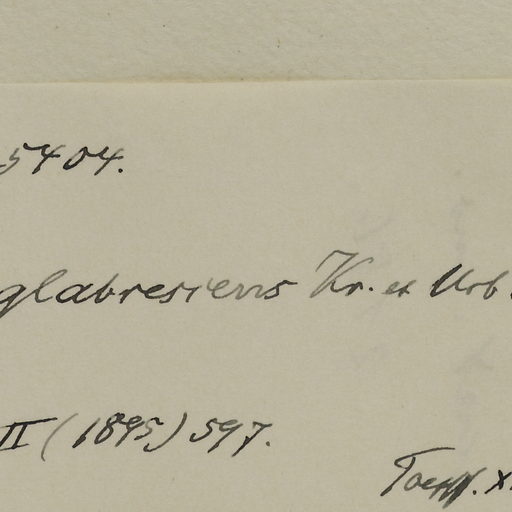 5404.
glabresiens Kr. et Urb.
II (1895) 597.